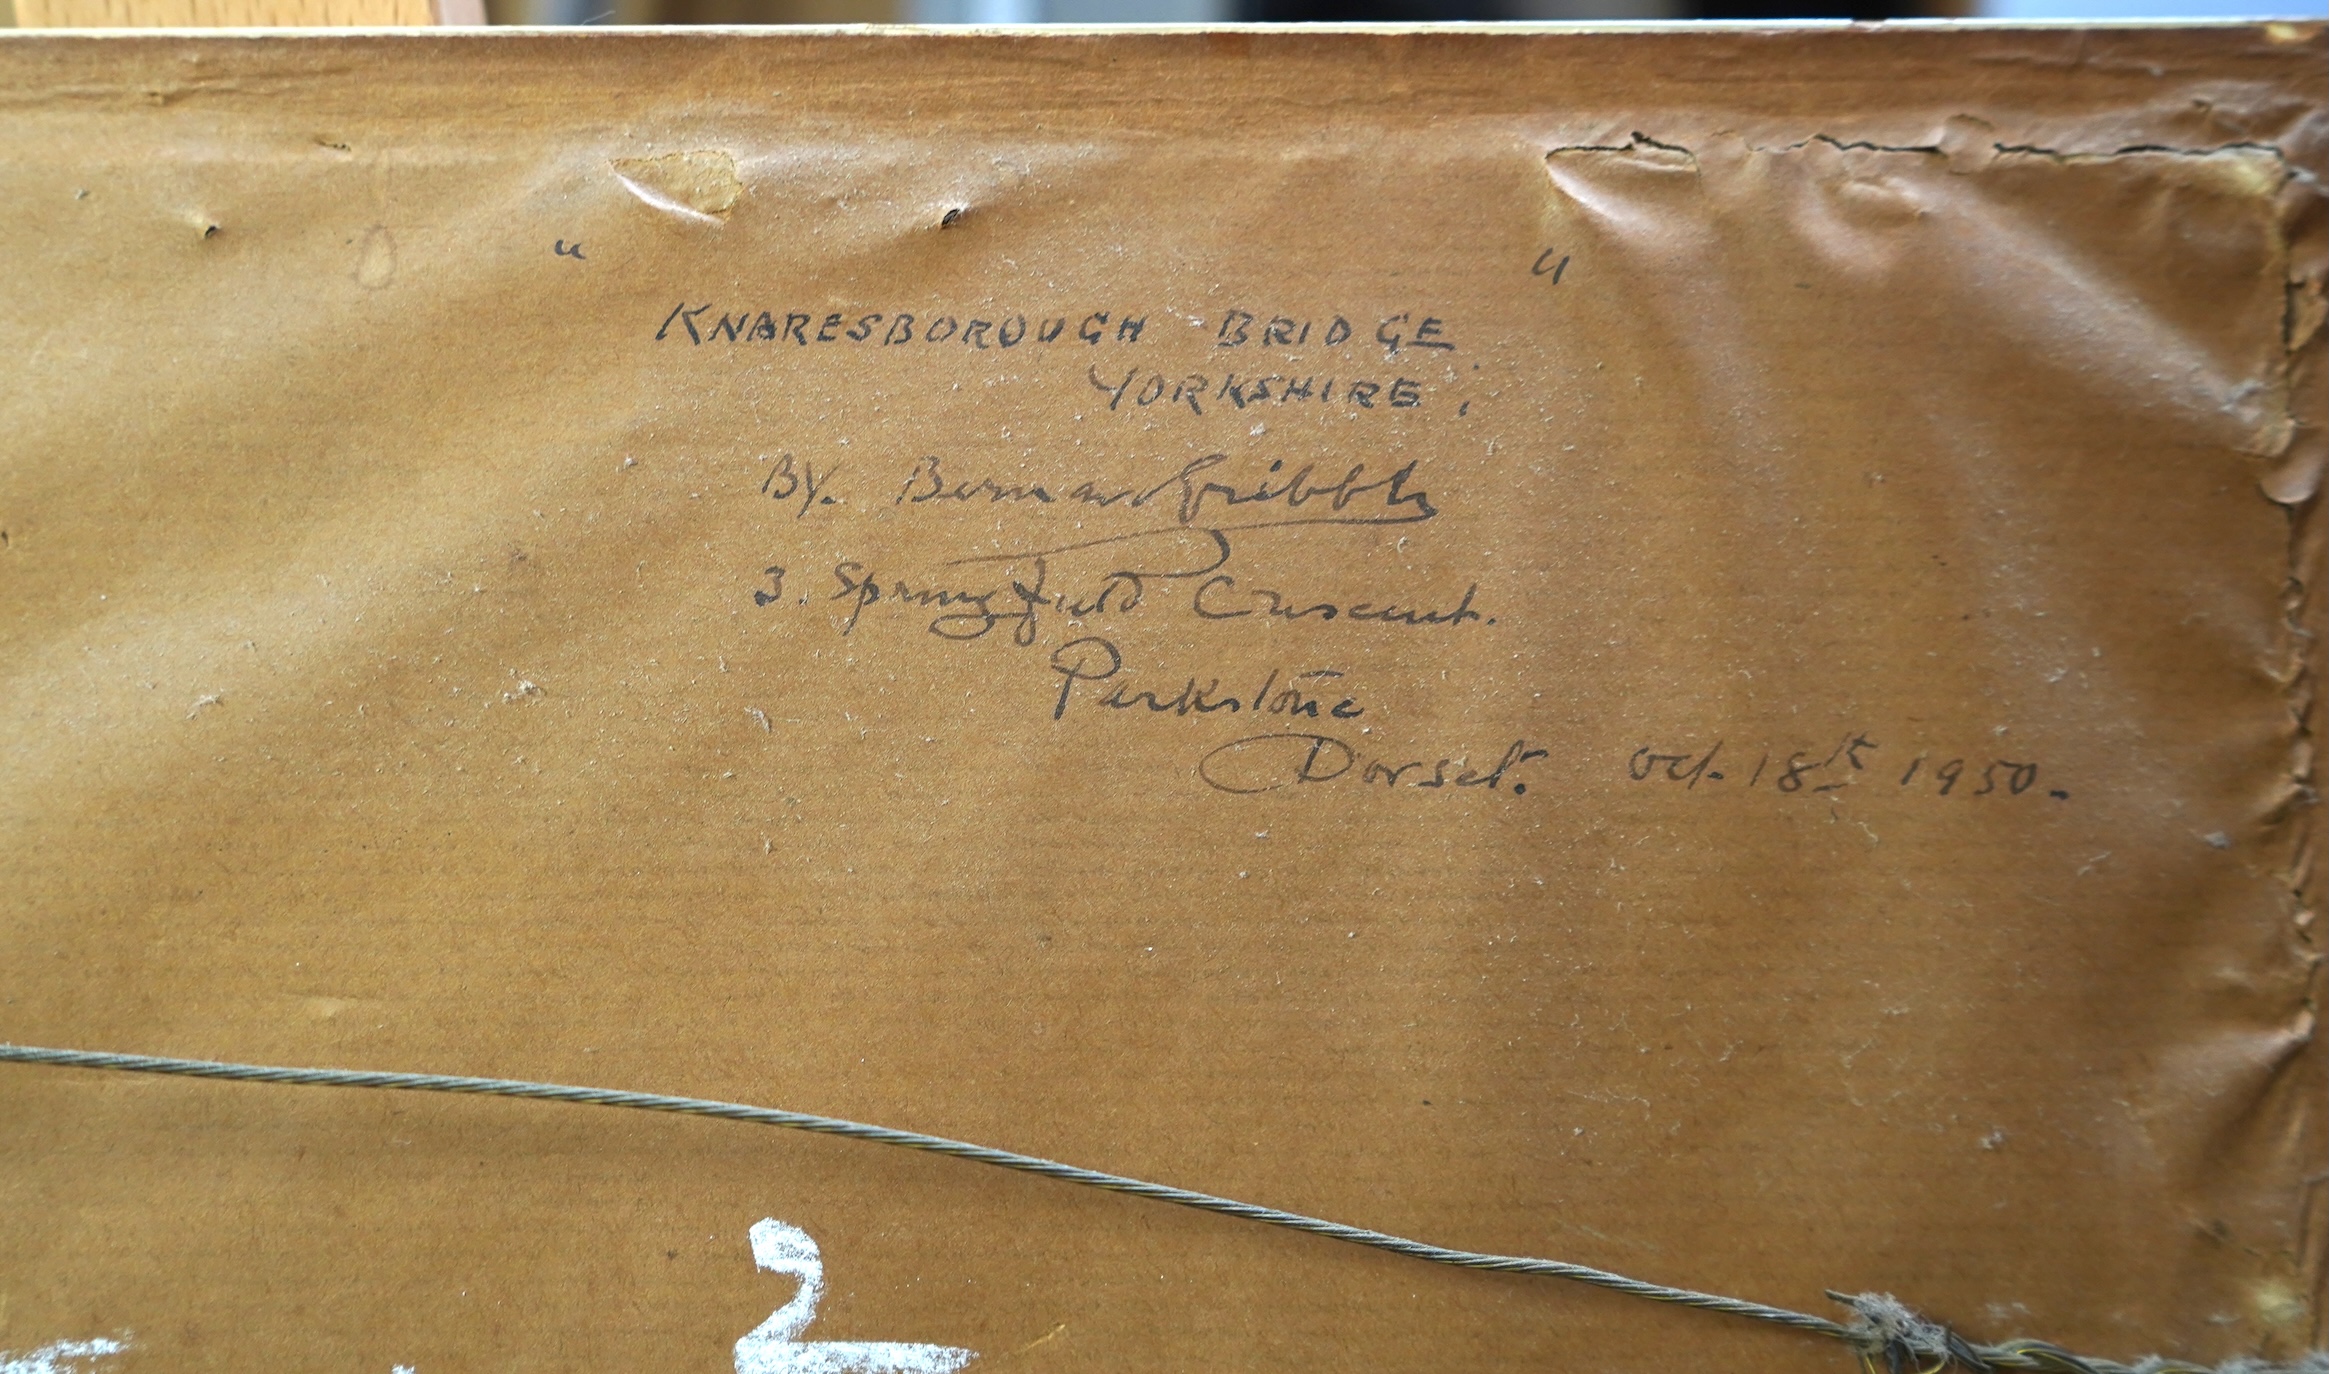 " "
KNARESBOROUGH BRIDGE
YORKSHIRE;
By. Bernard Gribble
3. Springfield Crescent.
Parkstone
Dorset. Oct. 18th 1950.
2